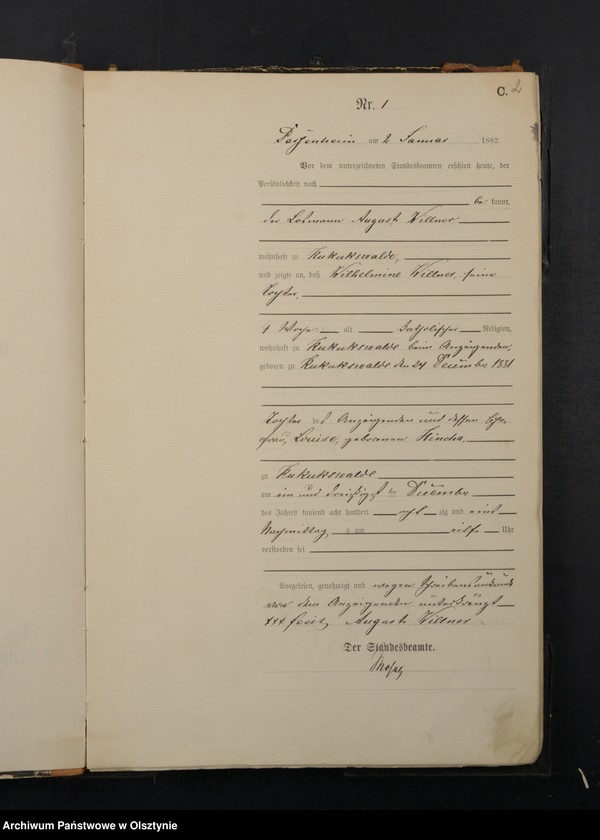 C. 2
Nr. 1
Passenheim am 2 Januar 1882.
Vor dem unterzeichneten Standesbeamten erschien heute, der
Persönlichkeit nach
be kannt,
der Losmann August Willner
wohnhaft zu Kukukswalde,
und zeigte an, daß Wilhelmine Willner, seine
Tochter,
1 Woche alt katholischer Religion,
wohnhaft zu Kukukswalde beim Anzeigenden,
geboren zu Kukukswalde den 24 December 1881
Tochter des Anzeigenden und dessen Ehe-
frau, Louise, geborenen
zu Kukukswalde
am ein und dreißigst en December
des Jahres tausend acht hundert acht zig und eins
Nachmittag s um eilf Uhr
verstorben sei
Vorgelesen, genehmigt und wegen Schreibensunkunde
von dem Anzeigenden unterkreuzt
+++ fecit August Willner
Der Standesbeamte.
Archiwum Państwowe w Olsztynie